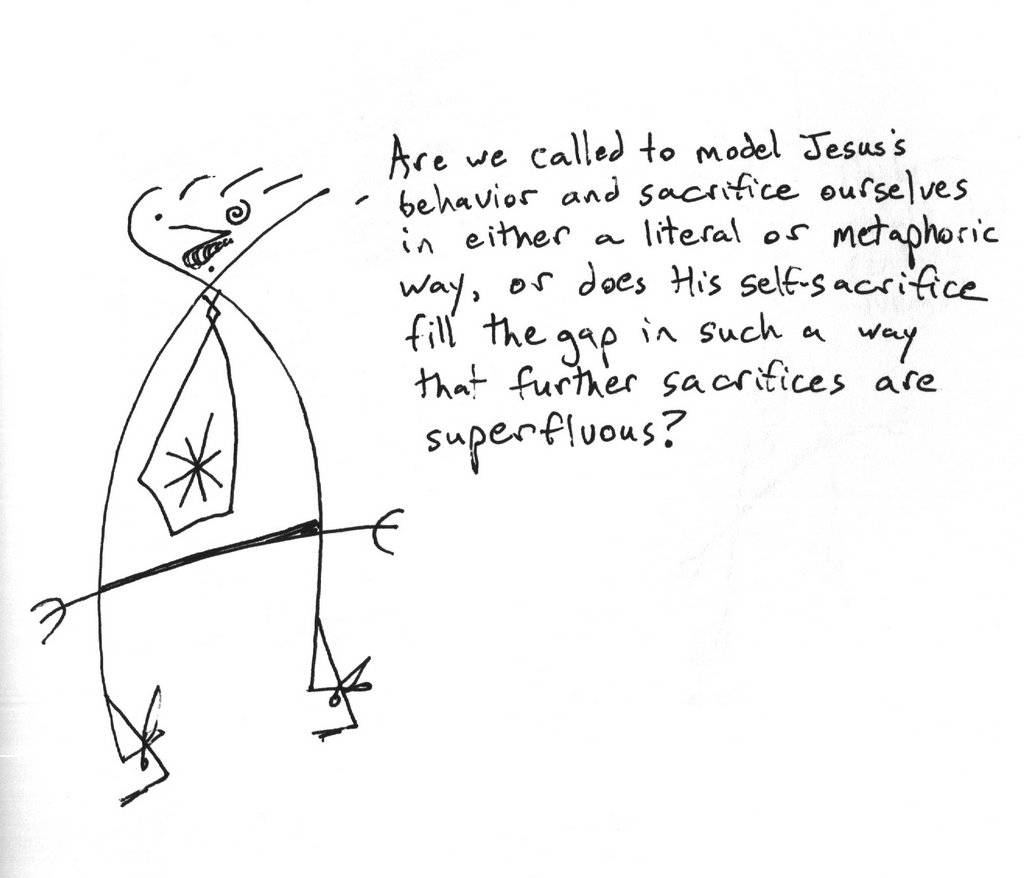 Are we called to model Jesus's
behavior and sacrifice ourselves
in either a literal or metaphoric
way, or does His self-sacrifice
fill the gap in such a way
that further sacrifices are
superfluous?